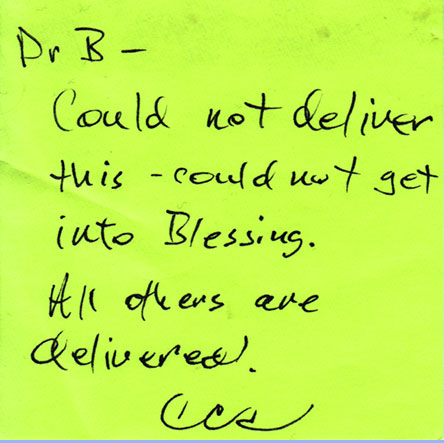 Dr B -
Could not deliver
this - could not get
into Blessing.
All others are
delivered.